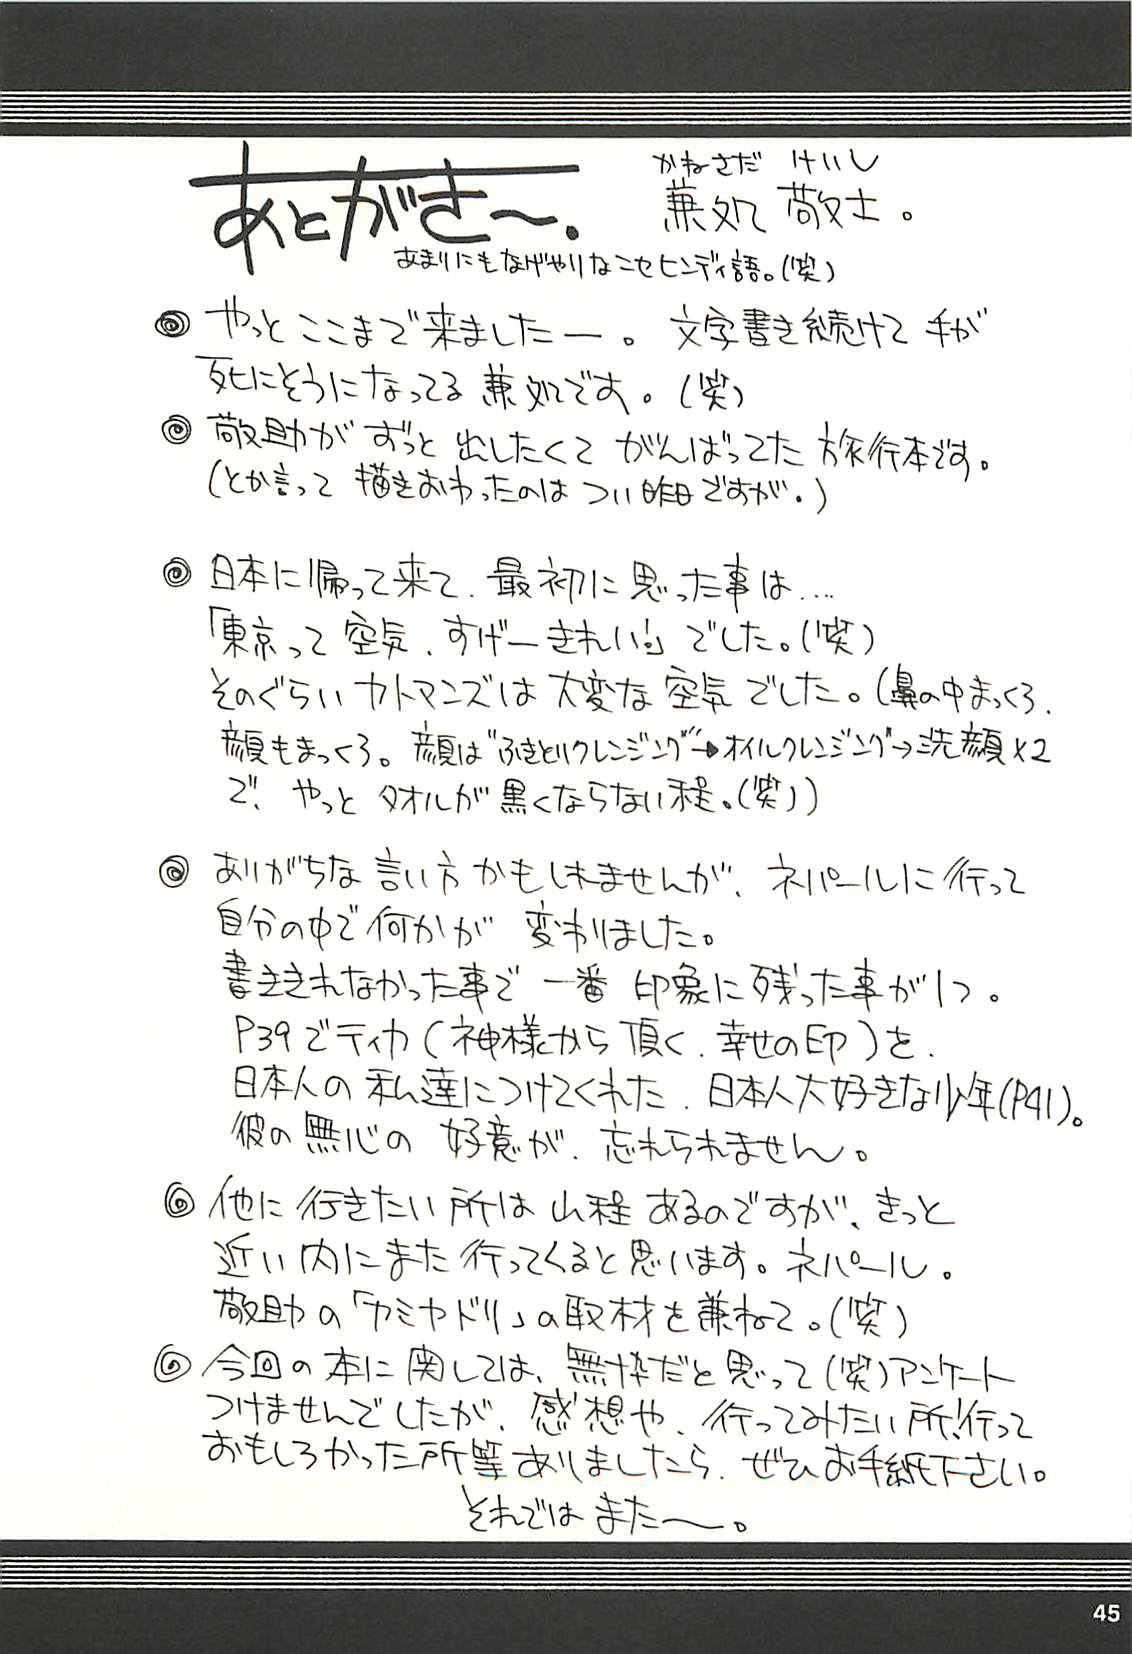 かねさだ けいし
あとがき〜。 兼処 敬士。
あまりにもなげやりなニセヒンディ語。(笑)
◎ やっとここまで来ましたー。 文字書き続けて 手が
死にそうになってる 兼処です。(笑)
◎ 敬助が ずっと 出したくて がんばってた 旅行本です。
(とか言って 描きおわったのは つい昨日ですが。)
◎ 日本に帰って来て、最初に思った事は....
「東京って 空気、すげーきれい!」でした。(笑)
そのぐらい カトマンズは 大変な 空気でした。(鼻の中まっくろ、
顔もまっくろ。顔は“ふきとりクレンジング”→オイルクレンジング→洗顔×2
で、やっと タオルが 黒くならない程。(笑))
◎ ありがちな 言い方かもしれませんが、ネパールに行って
自分の中で何かが 変わりました。
書ききれなかった事で 一番 印象に残った事が1つ。
P39でティカ(神様から 頂く、幸せの印)を、
日本人の 私達につけてくれた、日本人大好きな少年(P41)。
彼の無心の 好意が、忘れられません。
◎ 他に 行きたい 所は 山程 あるのですが、きっと
近い内にまた 行ってくると思います。ネパール。
敬助の「カミヤドリ」の取材を兼ねて。(笑)
◎ 今回の本に関しては、無粋だと思って(笑)アンケート
つけませんでしたが、感想や、行ってみたい所、行って
おもしろかった所等ありましたら、ぜひお手紙下さい。
それではまた〜。
45